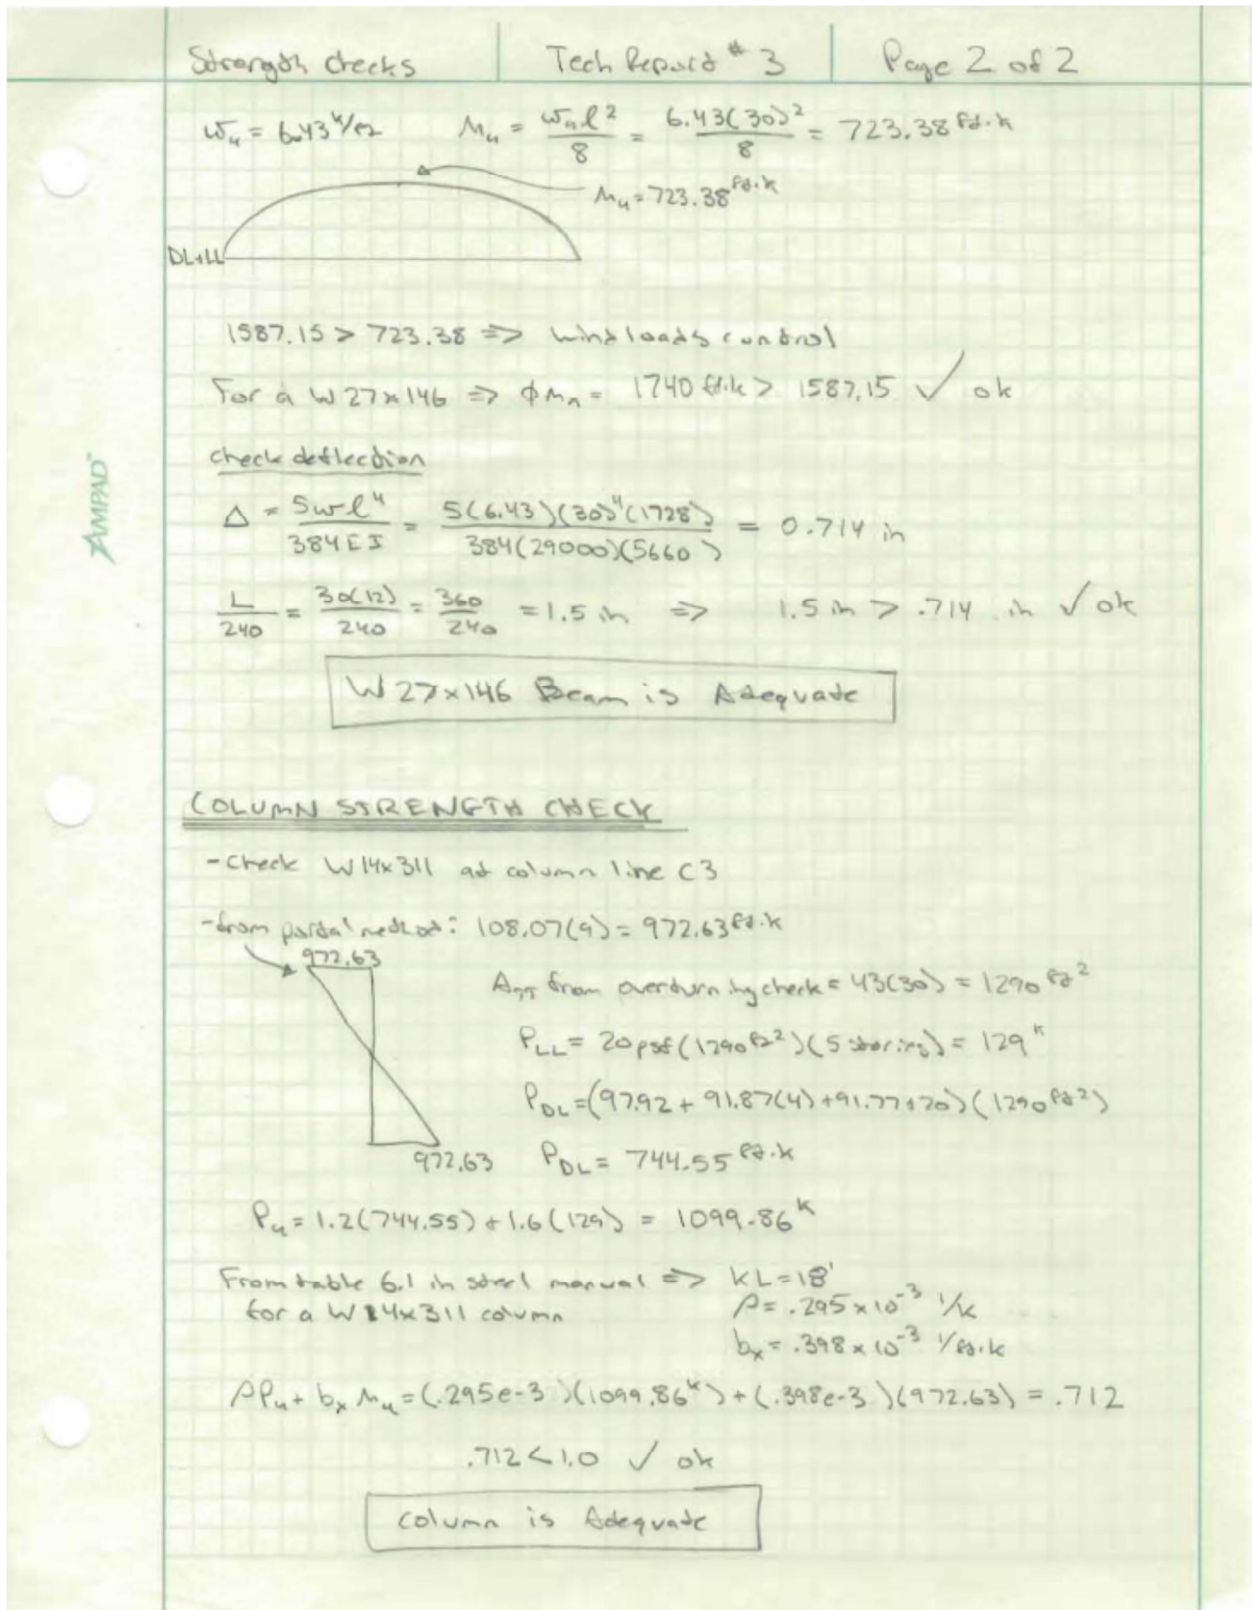 Strength Checks Tech Report #3 Page 2 of 2
wu = 6.43 k/ft Mu = wul²/8 = 6.43(30)²/8 = 723.38 ft·k
Mu = 723.38 ft·k
DL+LL
1587.15 > 723.38 => wind loads control
For a W27x146 => φMn = 1740 ft·k > 1587.15 ✓ ok
check deflection
Δ = 5wl⁴/384EI = 5(6.43)(30)⁴(1728)/384(29000)(5660) = 0.714 in
L/240 = 30(12)/240 = 360/240 = 1.5 in => 1.5 in > .714 in ✓ ok
W27x146 Beam is Adequate
AMPAD™
COLUMN STRENGTH CHECK
- check W14x311 at column line C3
- from portal method: 108.07(9) = 972.63 ft·k
972.63
ATT from overturning check = 43(30) = 1290 ft²
PLL = 20psf(1290 ft²)(5 stories) = 129 k
PDL = (97.92 + 91.87(4) + 91.77+20)(1290 ft²)
972.63 PDL = 744.55 ft·k
Pu = 1.2(744.55) + 1.6(129) = 1099.86 k
From table 6.1 in steel manual => KL = 18'
for a W14x311 column ρ = .295 x 10⁻³ 1/k
bx = .398 x 10⁻³ 1/ft·k
ρPu + bxMu = (.295e-3)(1099.86 k) + (.398e-3)(972.63) = .712
.712 < 1.0 ✓ ok
column is Adequate